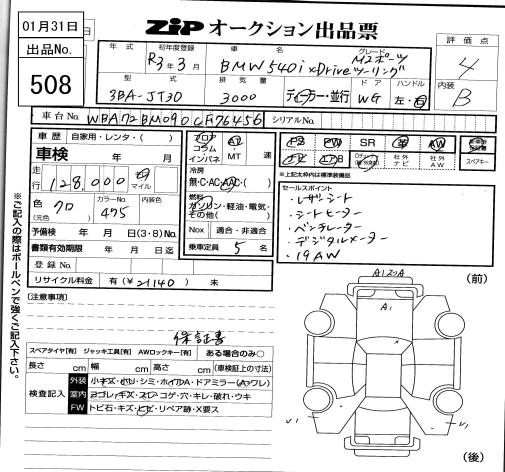 01月31日
出品No.
508
ZIP オークション出品票
年式 初年度登録 車名 グレード 評価点
R3年3月 BMW 540i xDrive ツーリング Mスポーツ 4
型式 排気量 ドア ハンドル 内装
3BA-JT30 3000 ディーラー・並行 WG 左・右 B
車台No. シリアルNo.
車歴 自家用・レンタ・( ) フロア コラム インパネ AT ・MT 速 PS PW SR 革 AW
車検 年 月 冷房 無・C・AC・AAC・( ) 社外ナビ 社外AW スペアキー
走行 128,000 km マイル 燃料 ガソリン・軽油・電気・その他( ) ※上記太わ枠内は標準装備品
色 (元色) クロ カラーNo. 475 内装色 セールスポイント
予備検 年 月 日(3・8)No. Nox 適合・非適合 ・レザーシート
書類有効期限 年 月 日迄 乗車定員 5 名 ・シートヒーター
登録No. ・ベンチレーター
リサイクル料金 有(¥21140) 未 ・デジタルメーター
・19AW
[注意事項] (前)
A1
保証書
スペアタイヤ[有] ジャッキ工具[有] AWロックキー[有] ある場合のみ○
長さ cm 幅 cm 高さ cm (車検証上の寸法)
検査記入 外装 小キズ・小凹・シミ・ホイルA・ドアミラー(A・ワレ)
室内 ヨゴレ・キズ・スレ・コゲ・穴・キレ・破れ・ウキ
FW トビ石・キズ・ヒビ・リペア跡・X要ス
(後)
※ご記入の際はボールペンで強くご記入下さい。